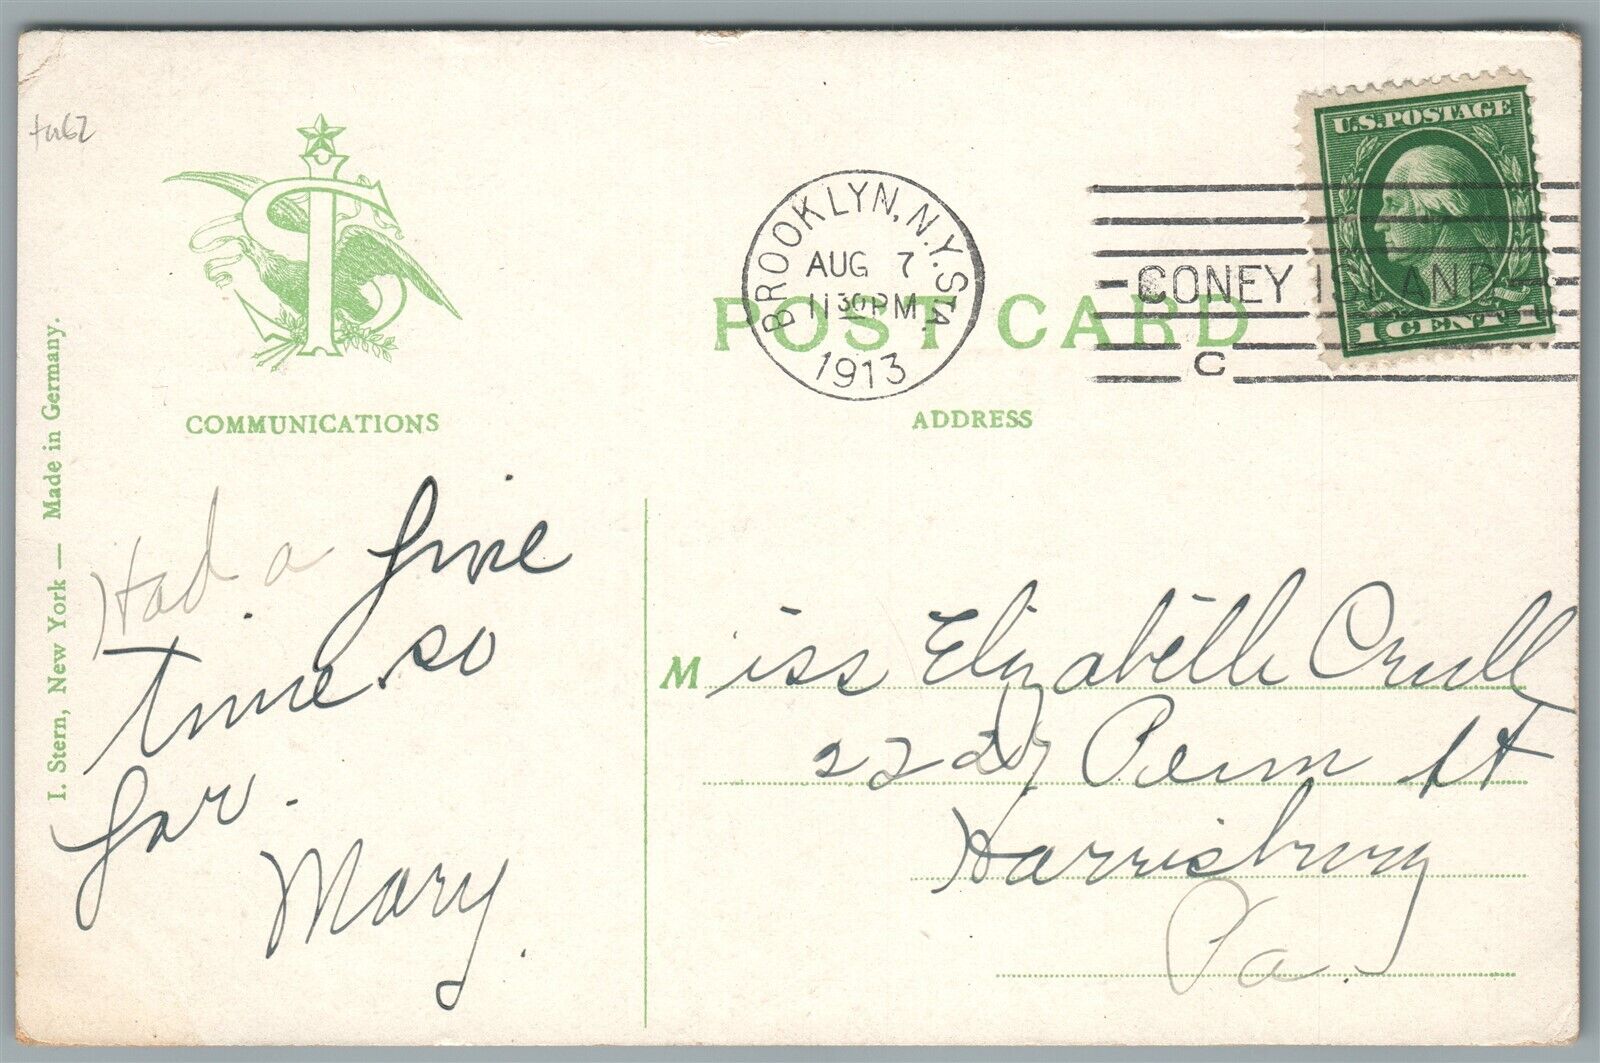 U.S. POSTAGE
1 CENT 1
BROOKLYN, N.Y. STA.
AUG 7
11 30 PM
1913
CONEY ISLAND
C
POST CARD
COMMUNICATIONS
ADDRESS
I. Stern, New York — Made in Germany.
Had a fine
time so
far.
Mary.
Miss Elizabeth Crull
Penn St
Harrisburg
Pa.